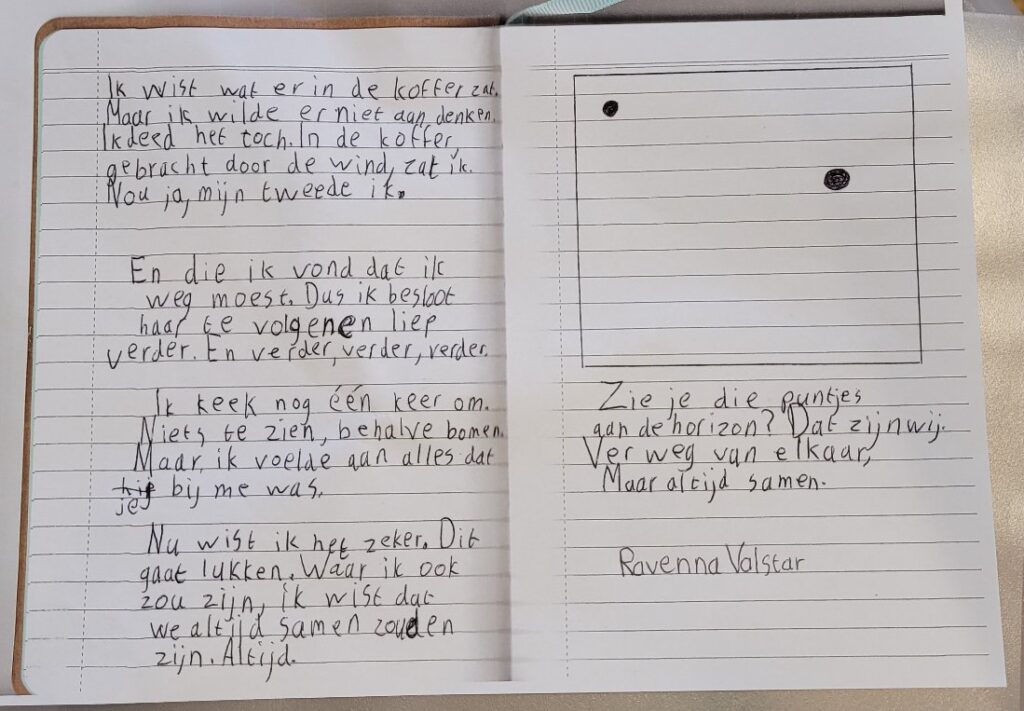 Ik wist wat er in de koffer zat.
Maar ik wilde er niet aan denken.
Ik deed het toch. In de koffer,
gebracht door de wind, zat ik.
Nou ja, mijn tweede ik.
En die ik vond dat ik
weg moest. Dus ik besloot
haar te volgen en liep
verder. En verder, verder, verder.
Ik keek nog één keer om.
Niets te zien, behalve bomen.
Maar ik voelde aan alles dat
je bij me was.
Nu wist ik het zeker. Dit
gaat lukken. Waar ik ook
zou zijn, ik wist dat
we altijd samen zouden
zijn. Altijd.
Zie je die puntjes
aan de horizon? Dat zijn wij.
Ver weg van elkaar,
Maar altijd samen.
Ravenna Valstar